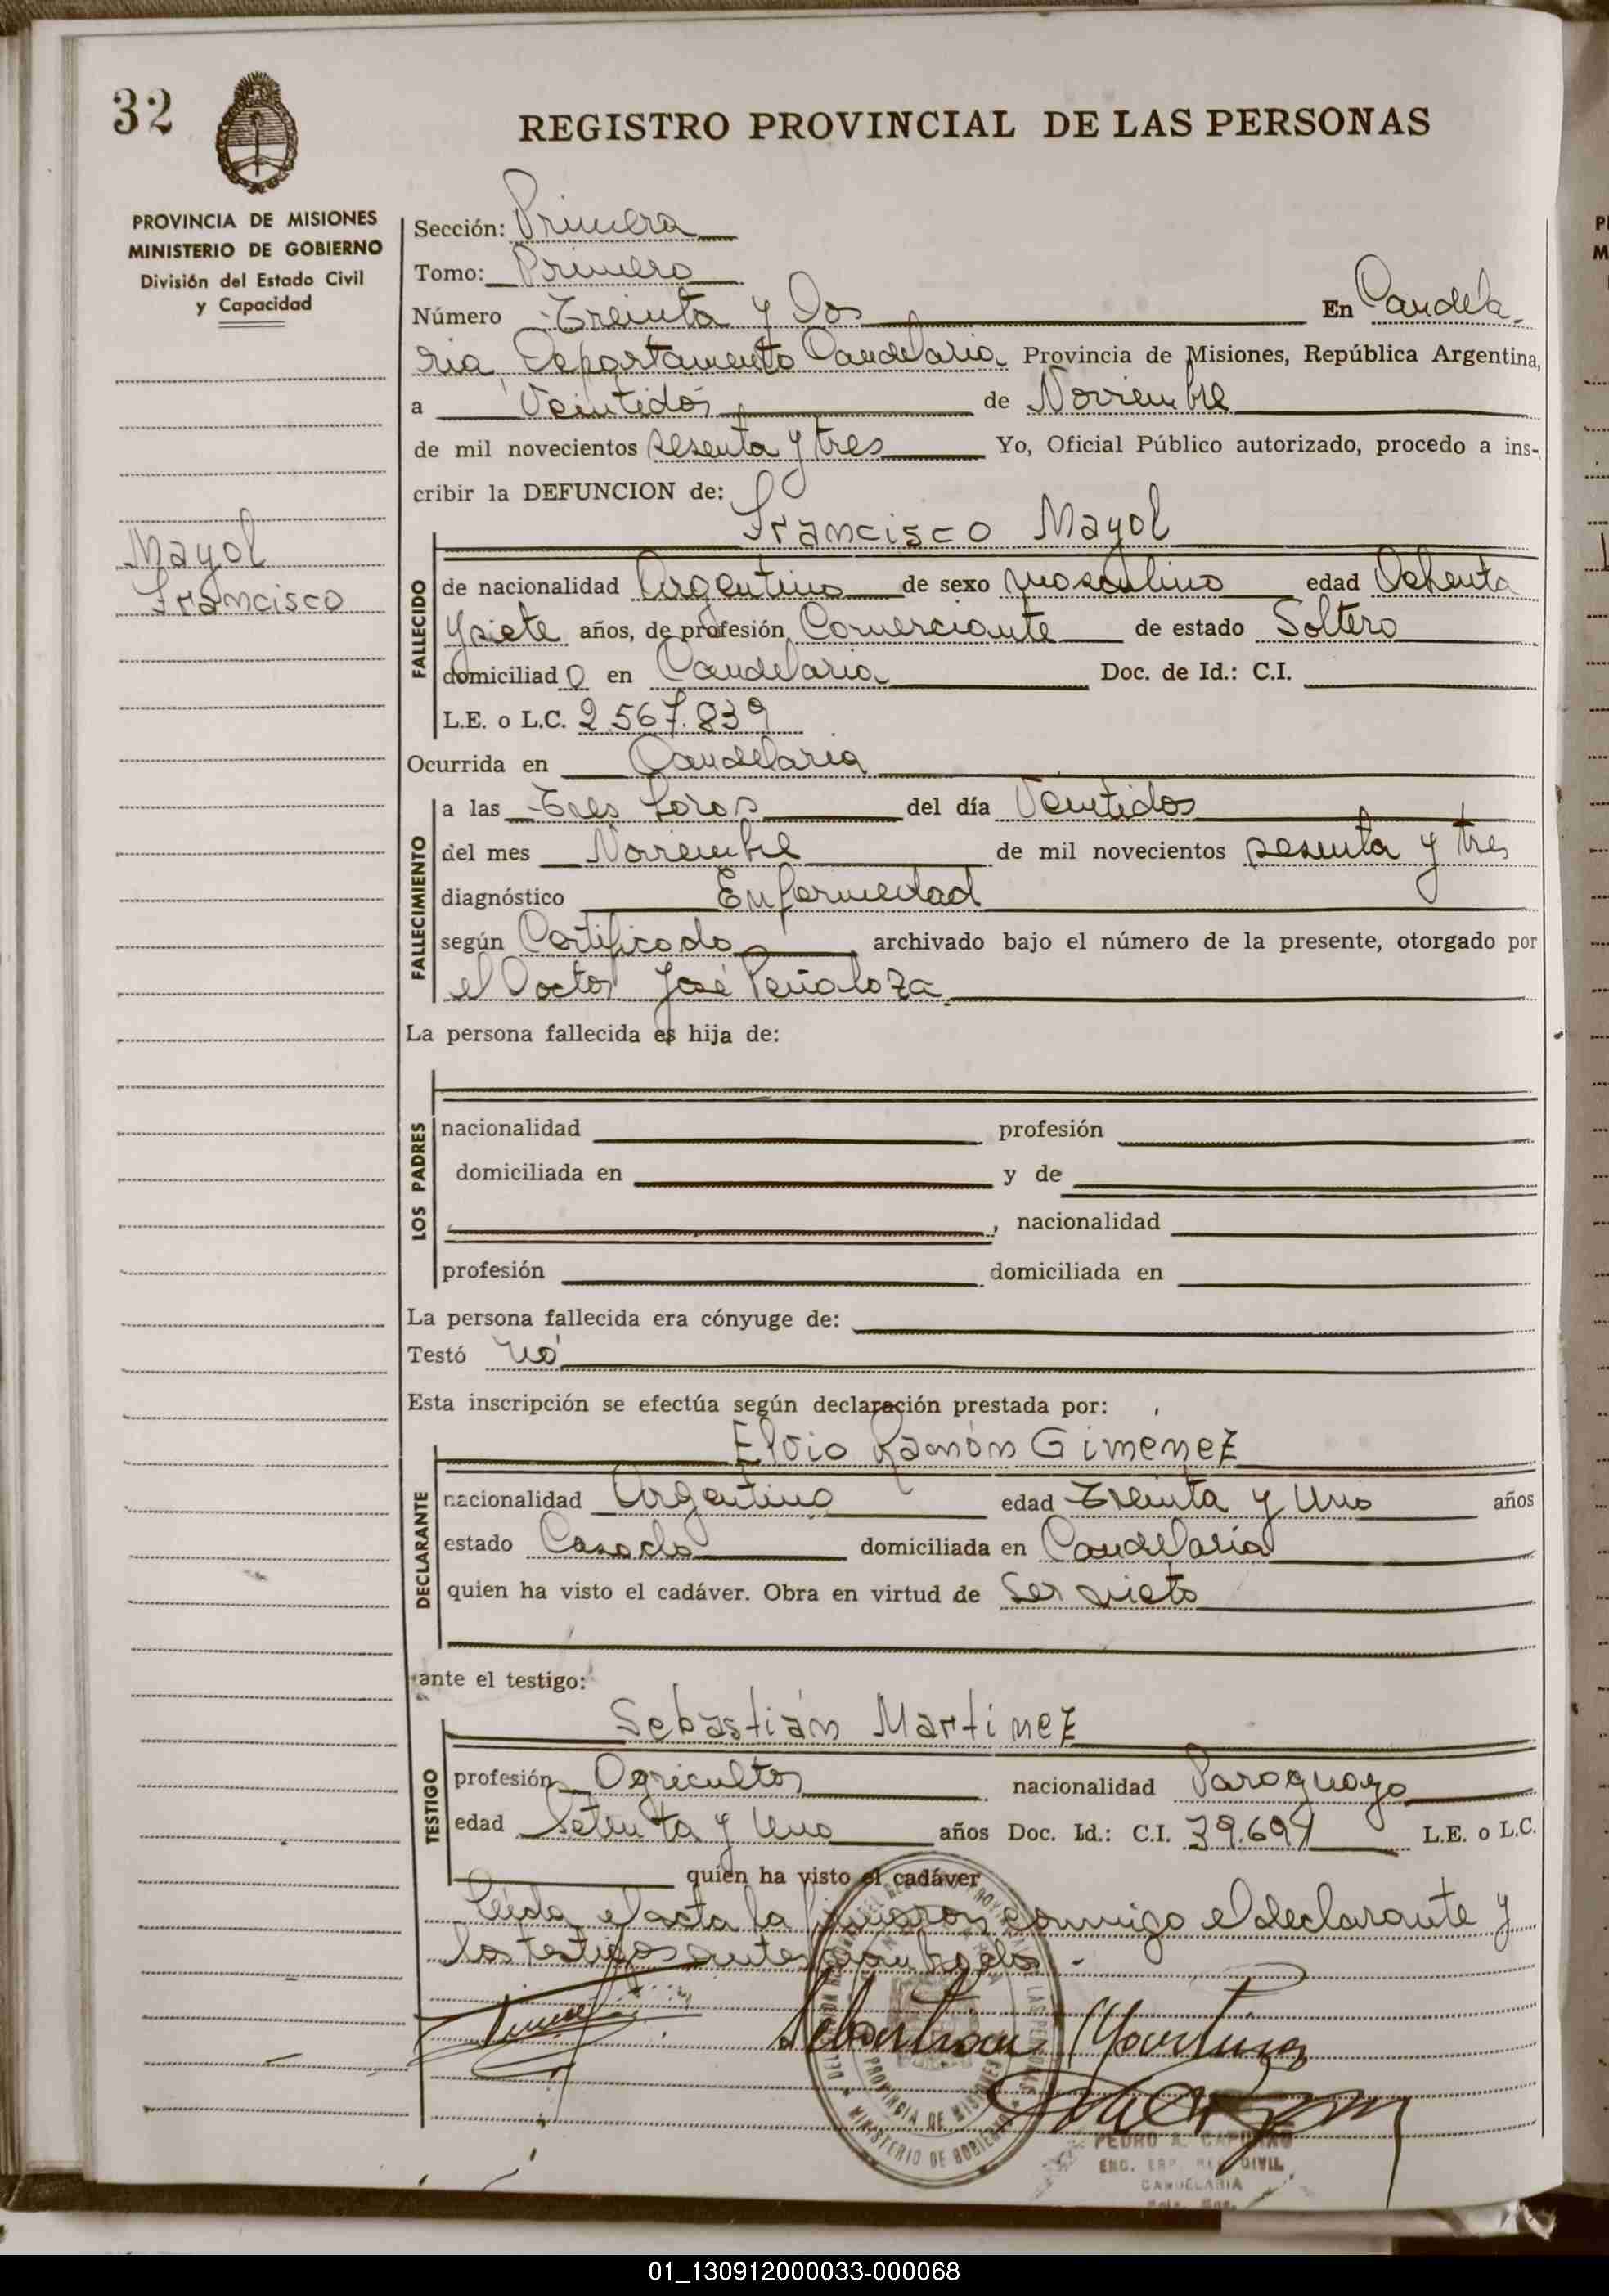 32
REGISTRO PROVINCIAL DE LAS PERSONAS
PROVINCIA DE MISIONES
MINISTERIO DE GOBIERNO
División del Estado Civil
y Capacidad
Mayol
Francisco
Sección: Primera
Tomo: Primero
Número Treinta y Dos En Candela-
ria, Departamento Candelaria Provincia de Misiones, República Argentina,
a Veintidós de Noviembre
de mil novecientos sesenta y tres Yo, Oficial Público autorizado, procedo a ins-
cribir la DEFUNCION de:
Francisco Mayol
FALLECIDO
de nacionalidad Argentino de sexo masculino edad Ochenta
y siete años, de profesión Comerciante de estado Soltero
domiciliado en Candelaria Doc. de Id.: C.I.
L.E. o L.C. 2.567.839
Ocurrida en Candelaria
FALLECIMIENTO
a las Tres horas del día Veintidos
del mes Noviembre de mil novecientos sesenta y tres
diagnóstico Enfermedad
según Certificado archivado bajo el número de la presente, otorgado por
el Doctor José Peñaloza
La persona fallecida es hija de:
LOS PADRES
nacionalidad profesión
domiciliada en y de
, nacionalidad
profesión domiciliada en
La persona fallecida era cónyuge de:
Testó nó
Esta inscripción se efectúa según declaración prestada por:
Elvio Ramón Gimenez
DECLARANTE
nacionalidad Argentino edad Treinta y Uno años
estado Casado domiciliada en Candelaria
quien ha visto el cadáver. Obra en virtud de Ser nieto
ante el testigo:
Sebastián Martinez
TESTIGO
profesión Agricultor nacionalidad Paraguayo
edad Setenta y Uno años Doc. Id.: C.I. 39.694 L.E. o L.C.
quien ha visto el cadáver
Leída el acta la firmaron conmigo el declarante y
los testigos
Sebastian Martinez
PROVINCIA DE MISIONES
MINISTERIO DE GOBIERNO
PEDRO A.
CIVIL
CANDELARIA
01_130912000033-000068